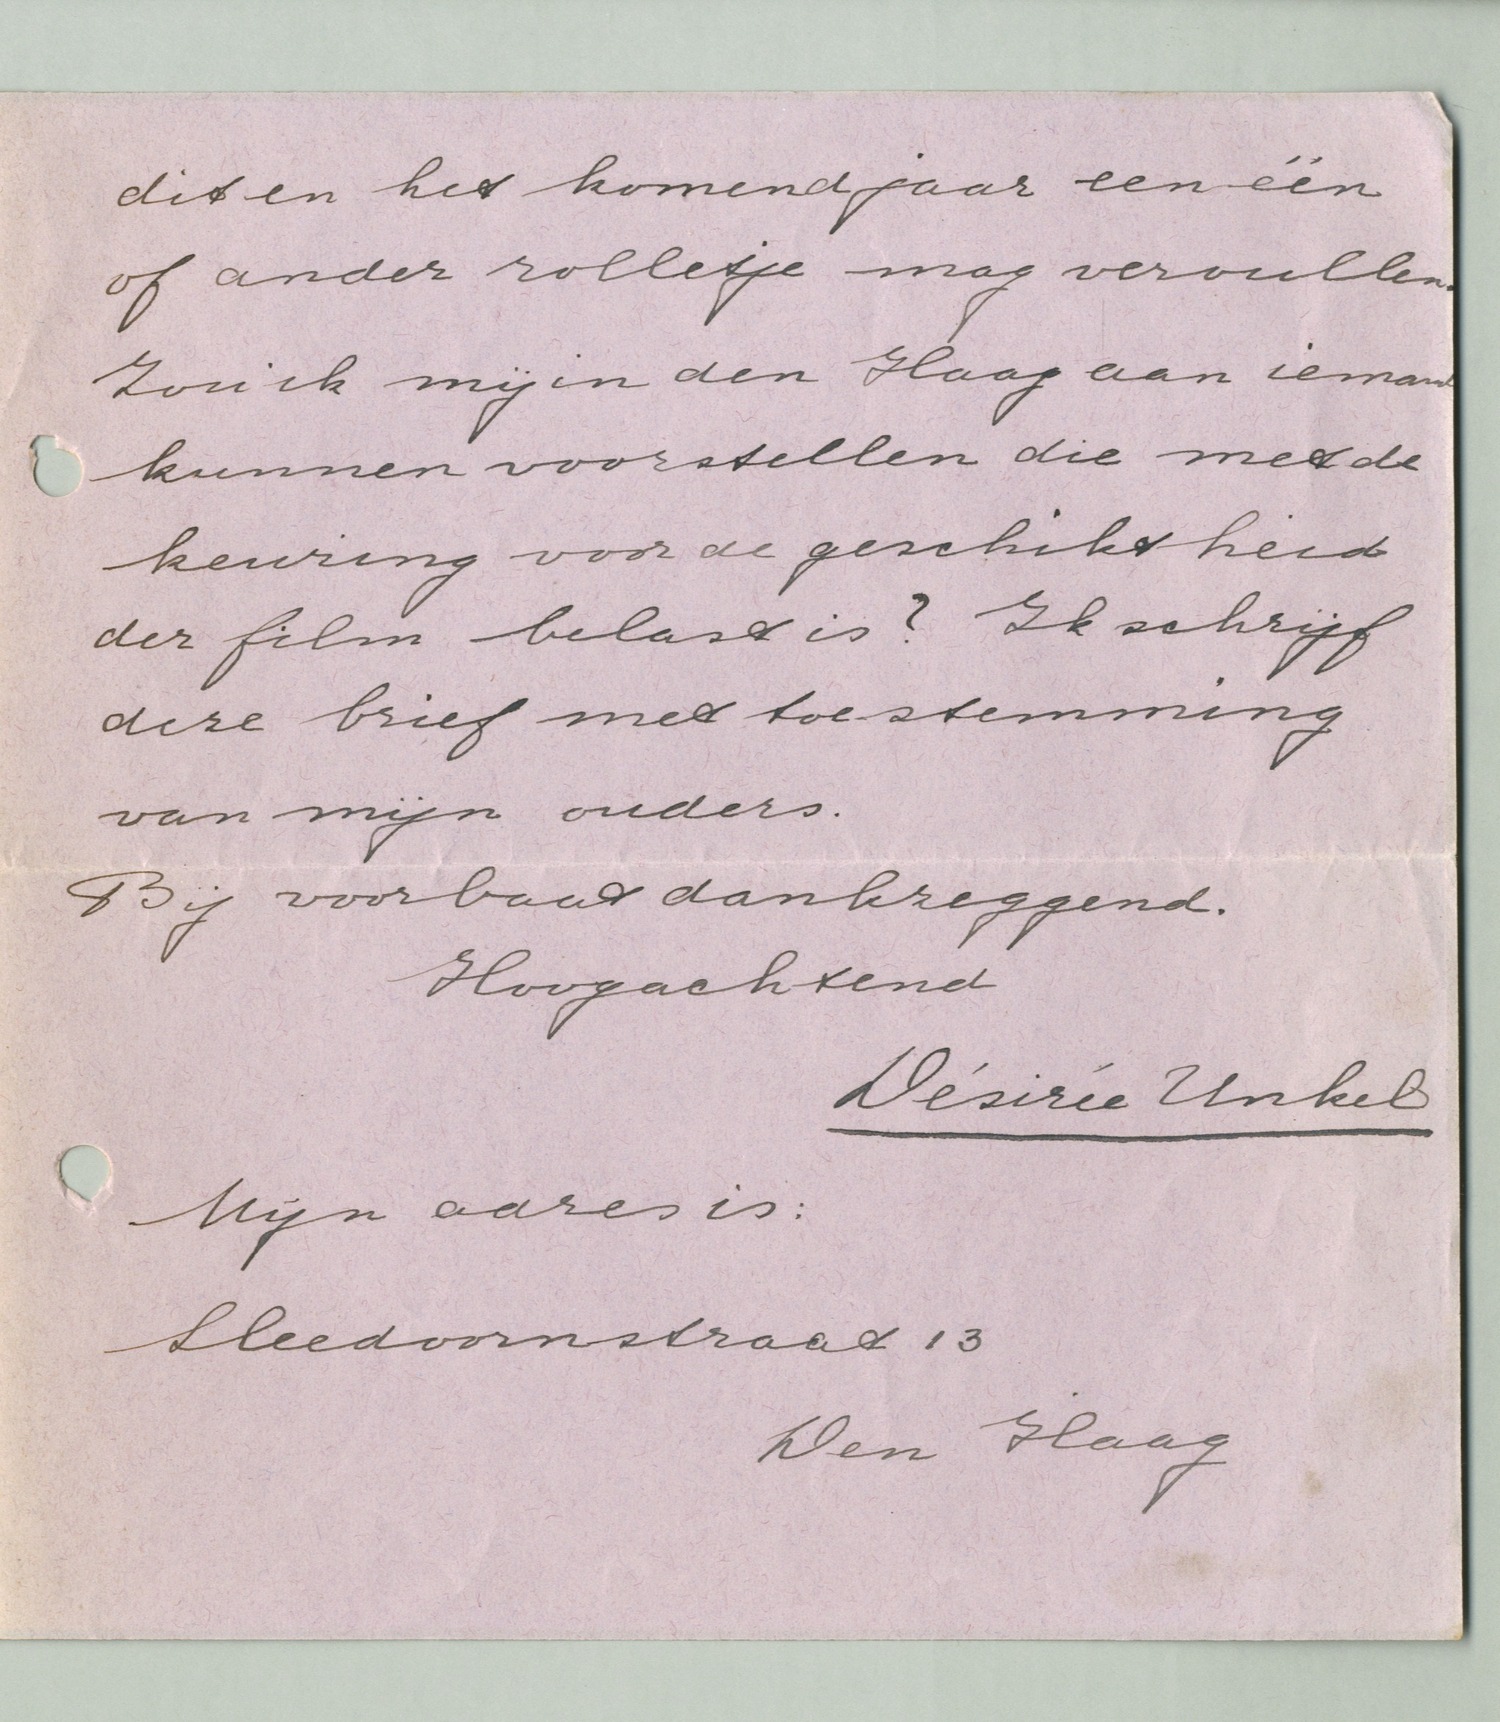 dit en het komend jaar een één
of ander rolletje mag vervullen.
Zou ik mij in den Haag aan iemand
kunnen voorstellen die met de
keuring voor de geschiktheid
der film belast is? Ik schrijf
deze brief met toestemming
van mijn ouders.
Bij voorbaat dankzeggend.
Hoogachtend
Désirée Unkel
Mijn adres is:
Sleedoornstraat 13
Den Haag